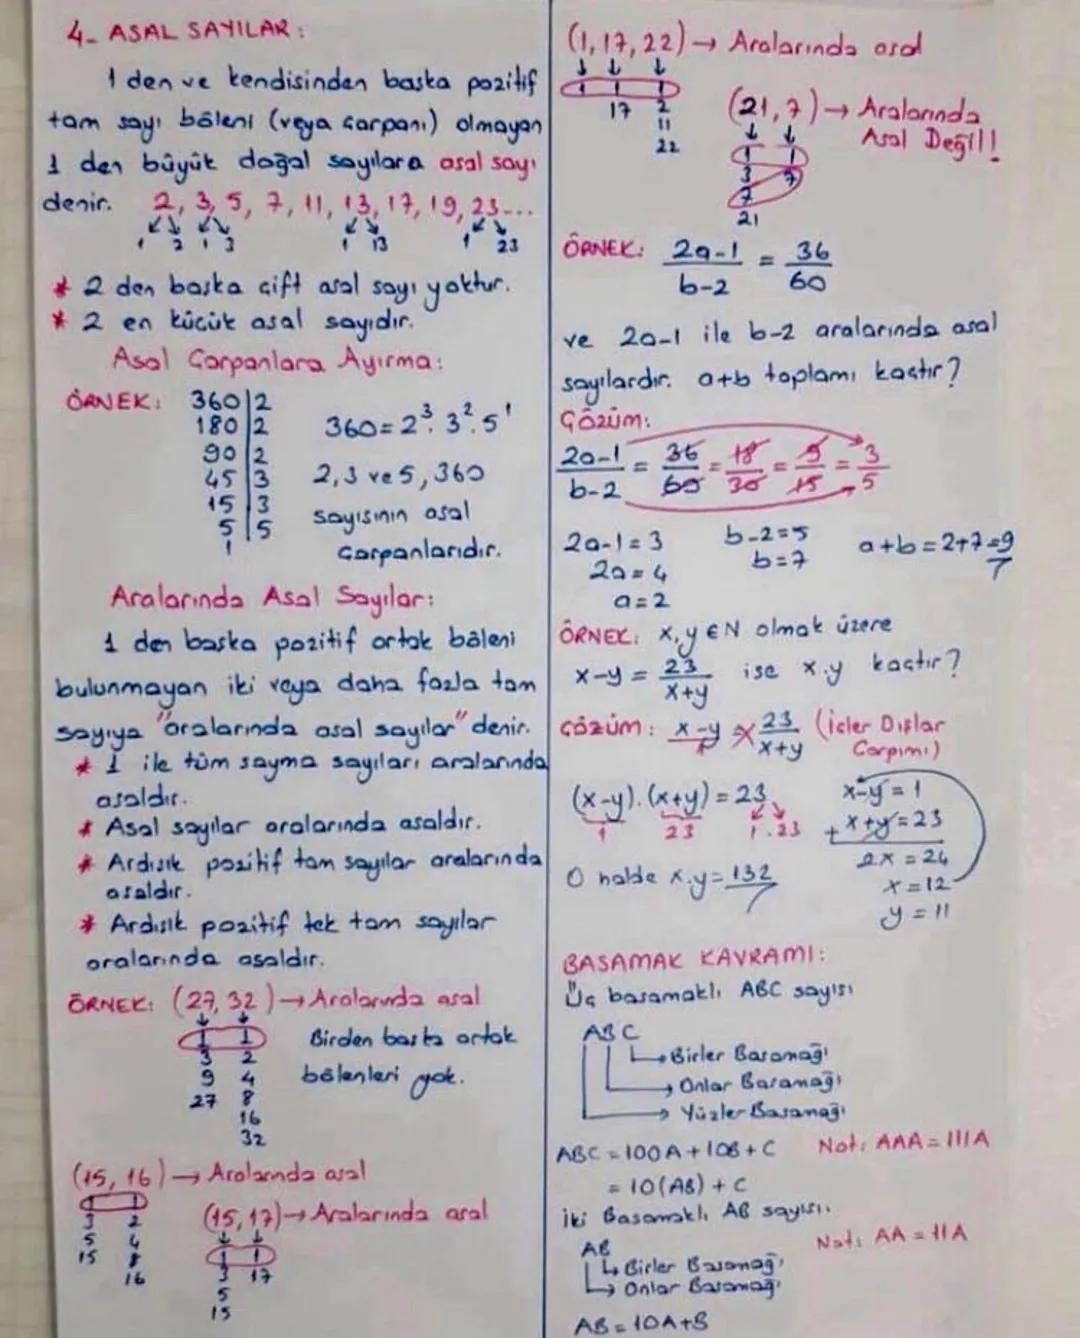 4- ASAL SAYILAR:
1 den ve kendisinden başka pozitif
tam sayı böleni (veya çarpanı) olmayan
1 den büyük doğal sayılara asal sayı
denir. 2, 3, 5, 7, 11, 13, 17, 19, 23...
1 2 1 3 1 13 1 23
* 2 den başka çift asal sayı yoktur.
* 2 en küçük asal sayıdır.
Asal Çarpanlara Ayırma:
ÖRNEK: 360|2
180|2 360=2³.3².5¹
90|2
45|3 2,3 ve 5, 360
15|3 sayısının asal
5|5 çarpanlarıdır.
1
Aralarında Asal Sayılar:
1 den başka pozitif ortak böleni
bulunmayan iki veya daha fazla tam
sayıya "aralarında asal sayılar" denir.
* 1 ile tüm sayma sayıları aralarında
asaldır.
* Asal sayılar aralarında asaldır.
* Ardışık pozitif tam sayılar aralarında
asaldır.
* Ardışık pozitif tek tam sayılar
aralarında asaldır.
ÖRNEK: (27, 32) → Aralarında asal
1 1 Birden başka ortak
3 2
9 4 bölenleri yok.
27 8
16
32
(15, 16) → Aralarında asal
1 1
3 2
5 4
15 8
16
(15, 17) → Aralarında asal
1 1
3 17
5
15
(1, 17, 22) → Aralarında asal
1 1 1
17 2
11
22
(21, 7) → Aralarında
Asal Değil!
1 1
3 7
7
21
ÖRNEK: 2a-1 = 36
b-2 60
ve 2a-1 ile b-2 aralarında asal
sayılardır. a+b toplamı kaçtır?
Çözüm:
2a-1 = 36 = 18 = 9 = 3
b-2 60 30 15 5
2a-1=3 b-2=5 a+b=2+7=9
2a=4 b=7
a=2
ÖRNEK: x,y ∈ N olmak üzere
x-y = 23 ise x.y kaçtır?
x+y
Çözüm: x-y 23 (İçler Dışlar
1 x+y Çarpımı)
(x-y).(x+y)=23 x-y=1
1 23 1.23 + x+y=23
2x=24
O halde x.y=132 x=12
y=11
BASAMAK KAVRAMI:
Üç basamaklı ABC sayısı
ABC
→ Birler Basamağı
→ Onlar Basamağı
→ Yüzler Basamağı
ABC=100A+10B+C Not: AAA=111A
=10(AB)+C
İki Basamaklı AB sayısı.
AB Not: AA=11A
→ Birler Basamağı
→ Onlar Basamağı
AB=10A+B